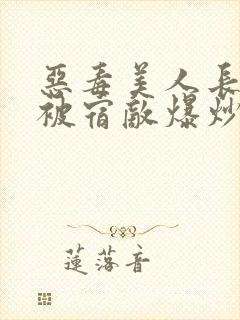 惡毒美人長
被宿敵爆炒
蓮落音